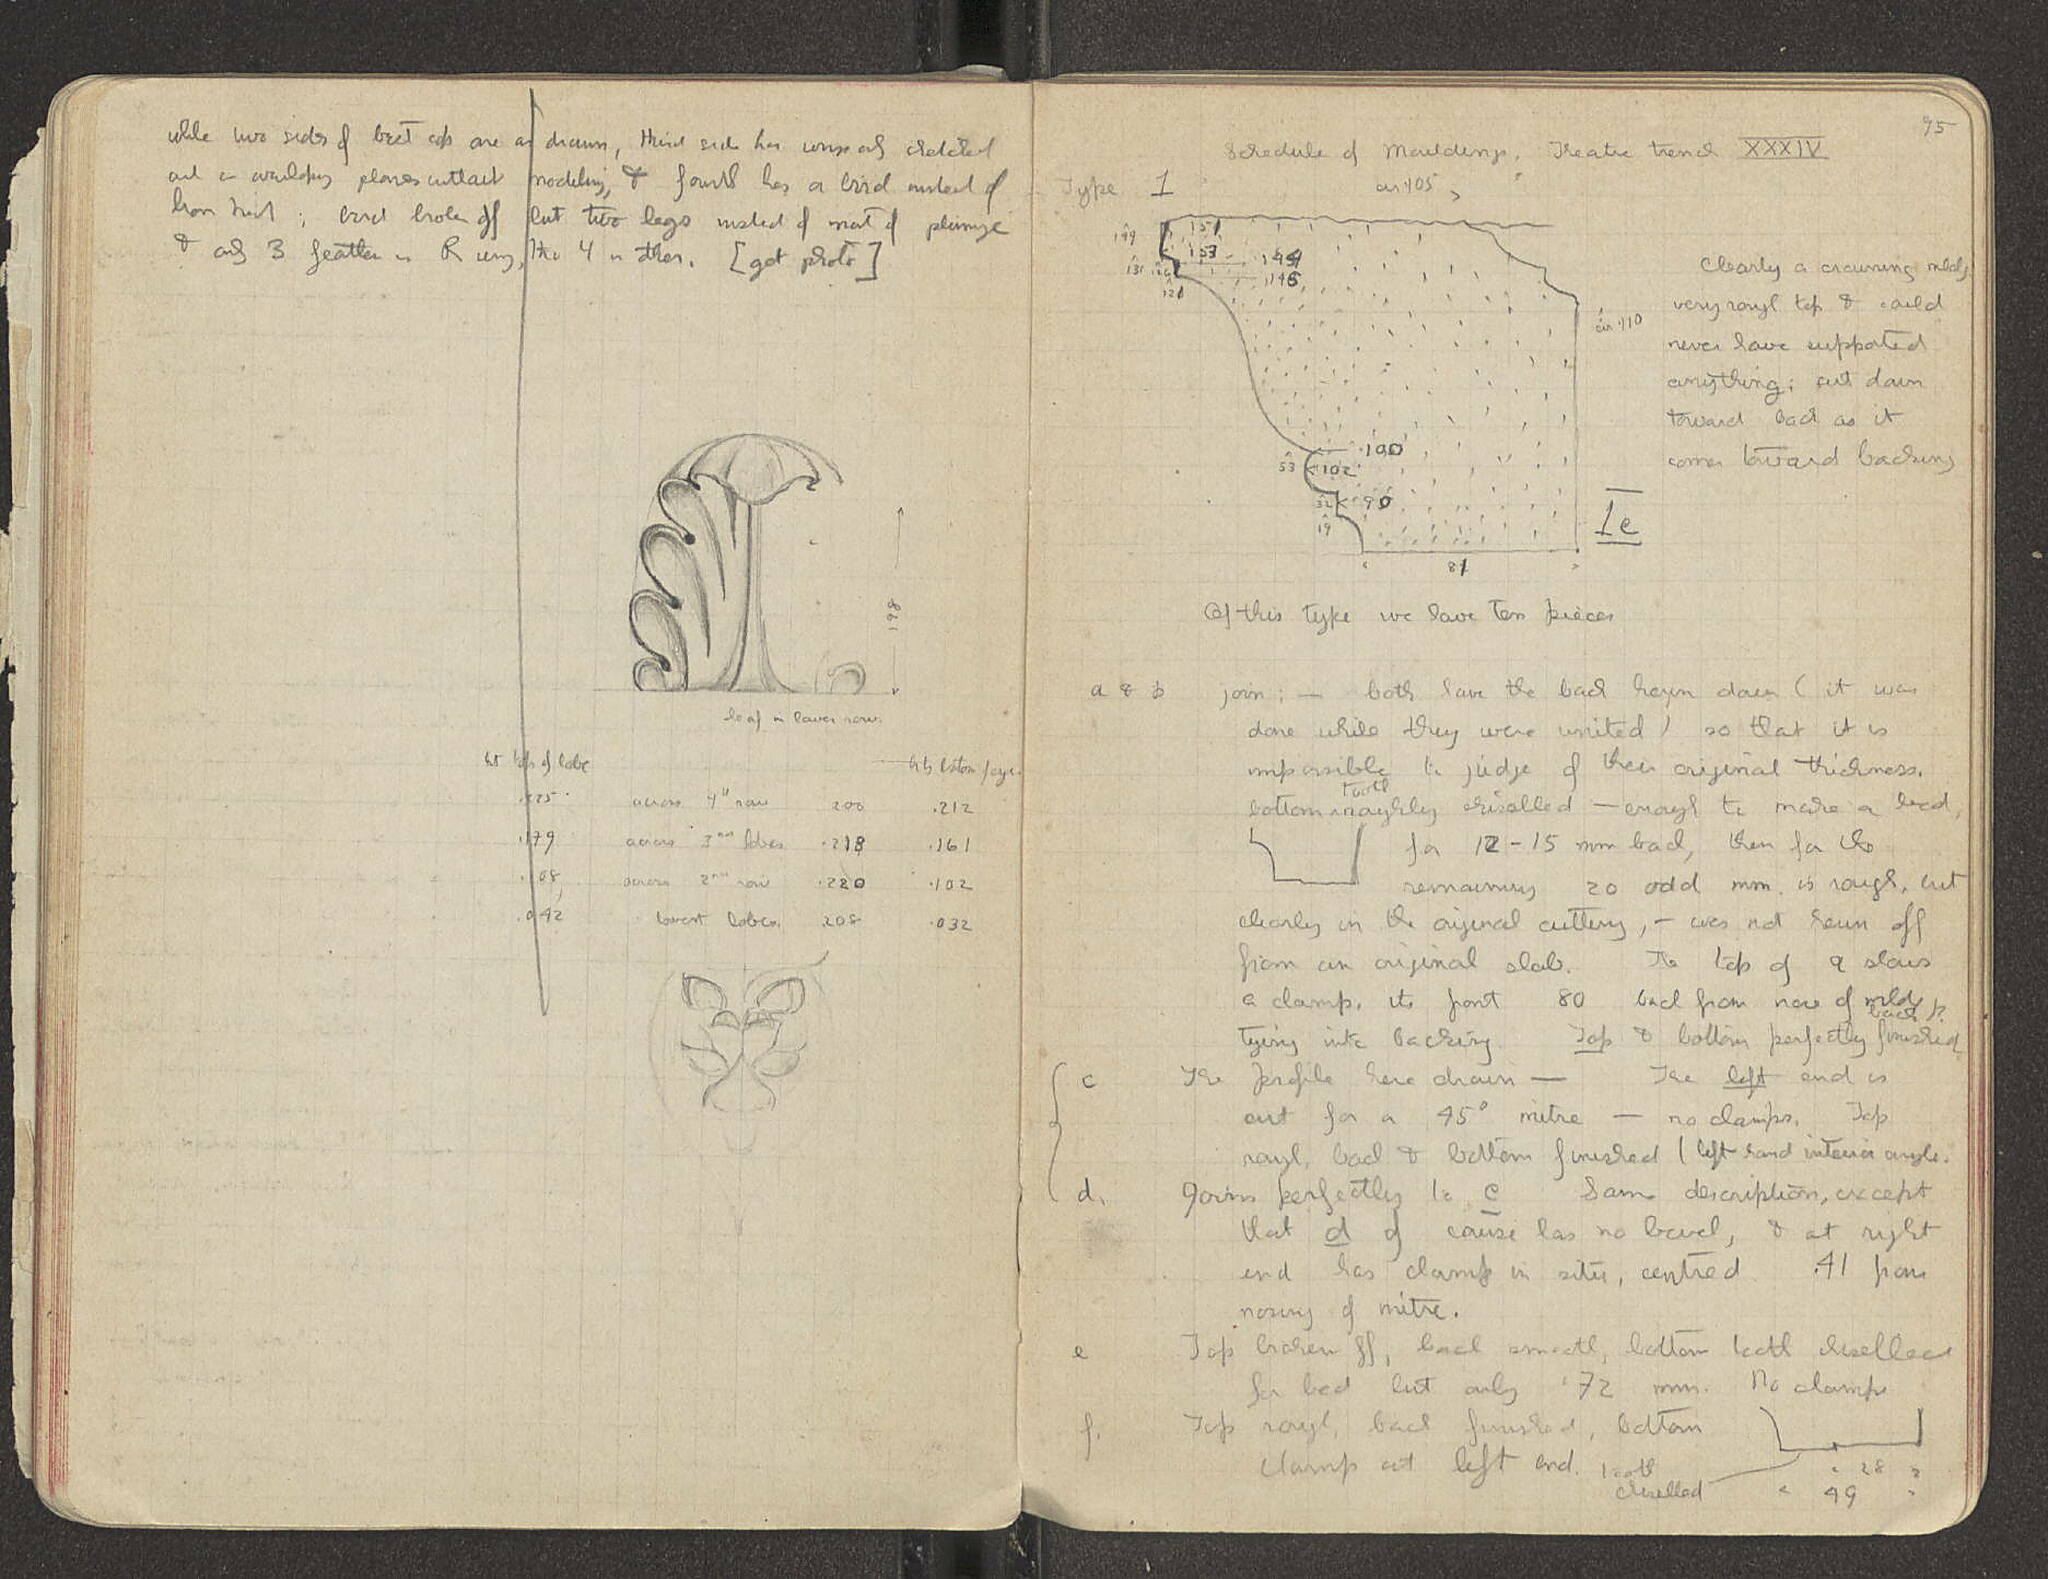 while two sides of best cap are as drawn, third side has wings only sketched
out in modeling, & fourth has a bird instead of
lion head; bird broken off but two legs instead of most of plumage
& only 3 feathers in R wing, tho 4 in other. [get photo]
198
leaf in lower row.
ht top of lobe
ht bottom / eye
.225 across 4th row 200 .212
.179 across 3rd lobes .218 .161
.108 across 2nd row .220 .102
.042 lowest lobes .208 .032
95
Schedule of Mouldings. Theatre trench XXXIV
Type 1
cir 105
149
151
153
131
126
121
149
146
cir 110
Clearly a crowning mldg
very rough top & could
never have supported
anything; cut down
toward back as it
comes toward backing
53
100
102
32
90
19
1c
81
Of this type we have ten pieces
a & b join; — both have the back hewn down (it was
done while they were united) so that it is
impossible to judge of their original thickness.
bottom tooth roughly chiselled — enough to make a bed,
for 12-15 mm back, then for the
remaining 20 odd mm. is rough, but
clearly in the original cutting, — was not hewn off
from an original slab. The top of a shows
a clamp, its front 80 back from nose of mldg
tying into backing. Top & bottom perfectly finished
back
c The profile here drawn — The left end is
cut for a 45° mitre — no clamps. Top
rough, back & bottom finished (left hand interior angle.
d. Joins perfectly to c Same description, except
that d of course has no bevel, & at right
end has clamp in situ, centred .41 from
nosing of mitre.
e Top broken off, back smooth, bottom tooth chiselled
for bed but only 72 mm. No clamps
f. Top rough, back finished, bottom
Clamp at left end.
tooth
chiselled
28
49